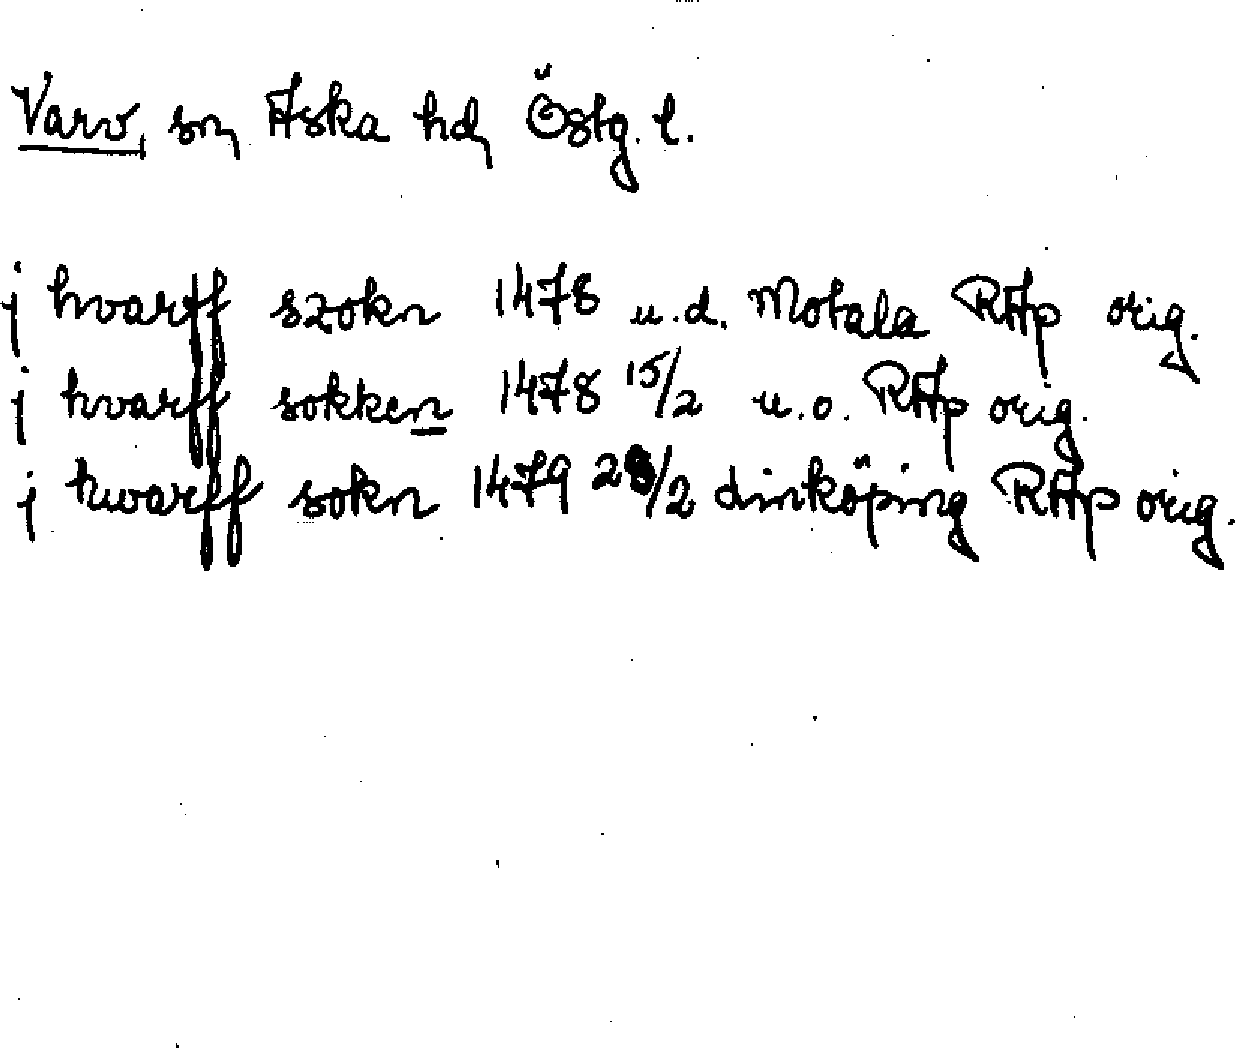 Varv, sn, Aska hd, Östg. l.
j hvarff szokn 1478 u.d. Motala RAp orig.
j hvarff sokken 1478 15/2 u.o. RAp orig.
j hwarff sokn 1479 28/2 Linköping RAp orig.